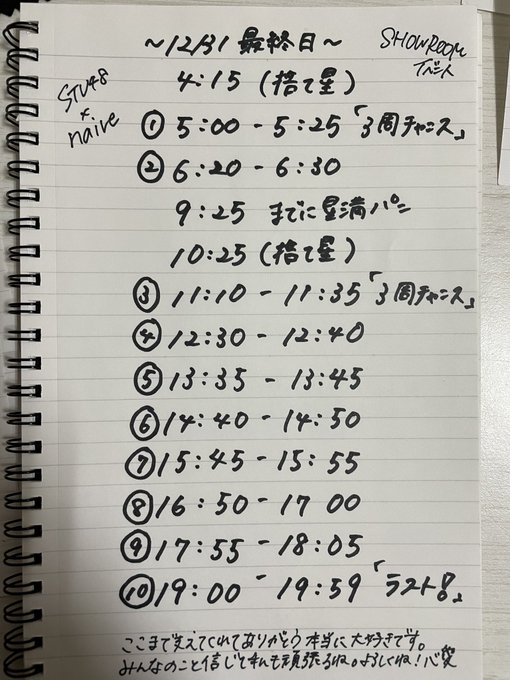 ~12/31 最終日~
SHOWROOM
イベント
STU48
×
naive
4:15 (捨て星)
① 5:00 - 5:25 「3周チャンス」
② 6:20 - 6:30
9:25 までに星満パン
10:25 (捨て星)
③ 11:10 - 11:35 「3周チャンス」
④ 12:30 - 12:40
⑤ 13:35 - 13:45
⑥ 14:40 - 14:50
⑦ 15:45 - 15:55
⑧ 16:50 - 17 00
⑨ 17:55 - 18:05
⑩ 19:00 - 19:59 「ラスト!」
ここまで支えてくれてありがとう本当に大好きです。
みんなのこと信じて私も頑張るね。よろしくね!心愛